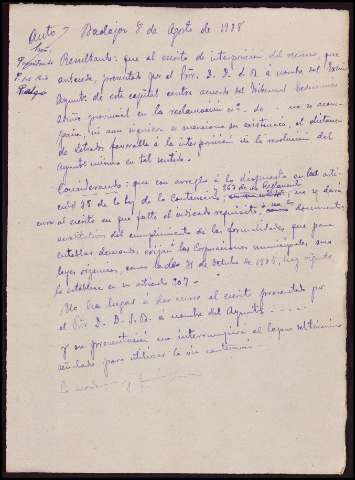 Auto / Badajoz 8 de Agosto de 1928
Resultando: que al escrito de interposición del recurso, que
antecede, presentado por el Pror. D. D. S. B. a nombre del Excmo
Aynto. de esta capital contra acuerdo del Tribunal Económico
Advo provincial en la reclamación nº - de - no se acom
paña, ni aun siquiera se menciona su existencia, el dictamen
de Letrado favorable á la interposición de la resolución del
Aynto. mismo en tal sentido.
Considerando: que con arreglo á lo dispuesto en los artí
culos 35 de la Ley de lo Contencioso y 263 de su Reglamento, no se dará
curso al escrito en que falte el indicado requisito, documentos
acreditativos del cumplimiento de las formalidades que para
entablar demanda, exijan las Corporaciones municipales, sus
leyes orgánicas, como la del 31 de Octubre de 1935, hoy vigente,
lo establece en su artículo 207.
No ha lugar á dar curso al escrito presentado por
el Pror. D. D. S. B. á nombre del Aynto.
y su presentación no interrumpirá el lapso
señalado para utilizar la vía contencio